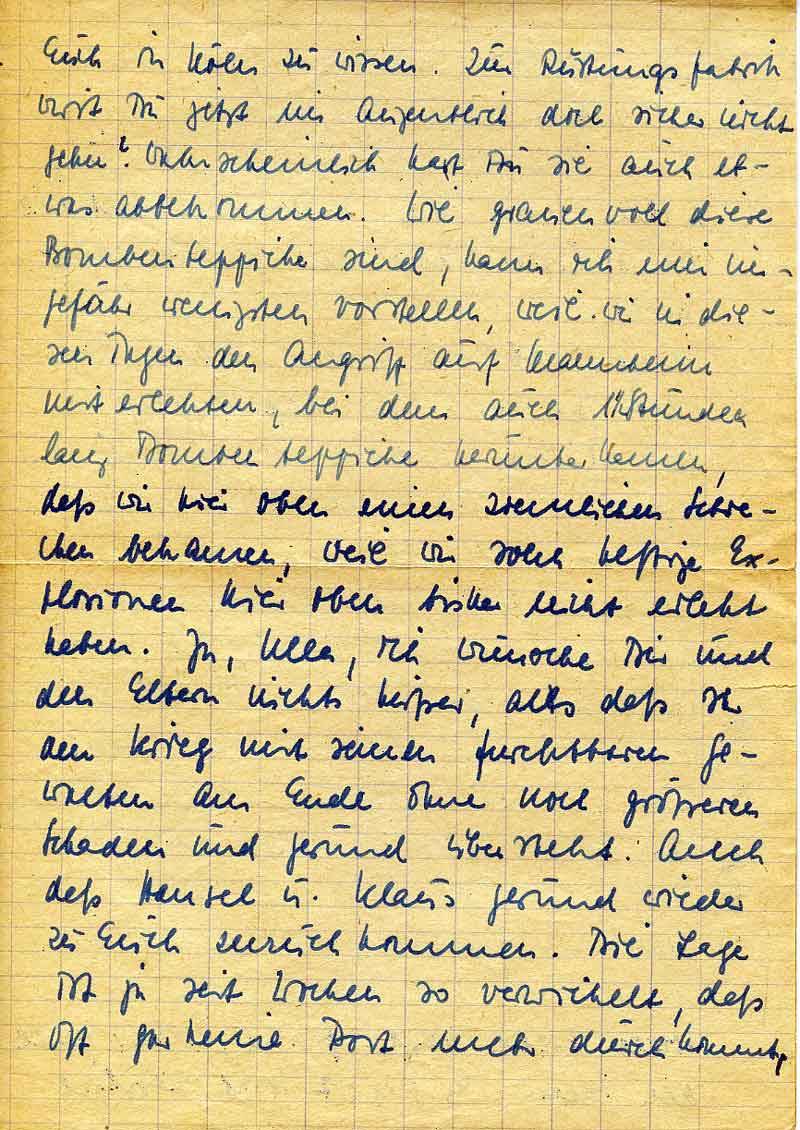 Euch in Köln zu wissen. Zur Rüstungsfabrik
wirst Du jetzt im Augenblick doch sicher nicht
gehn? Wahrscheinlich hast Du sie auch et-
was abbekommen. Wie grauenvoll diese
Bombenteppiche sind, kann ich mir un-
gefähr wenigstens vorstellen, weil wir in die-
sen Tagen den Angriff auf Mannheim
miterlebten, bei dem auch 1½ Stunden
lang Bombenteppiche herunterkamen,
daß wir hier oben einen ziemlichen Schre-
cken bekamen, weil wir solch heftige Ex-
plosionen hier oben bisher nicht erlebt
haben. Ja, Ulla, ich wünsche Dir und
den Eltern nichts heißer, als daß Ihr
den Krieg mit seinen furchtbaren Ge-
walten am Ende ohne noch größeren
Schaden und gesund übersteht. Auch
daß Hansel u. Klaus gesund wieder
zu Euch zurückkommen. Die Lage
ist ja seit Wochen so verwickelt, daß
oft gar keine Post mehr durchkommt,